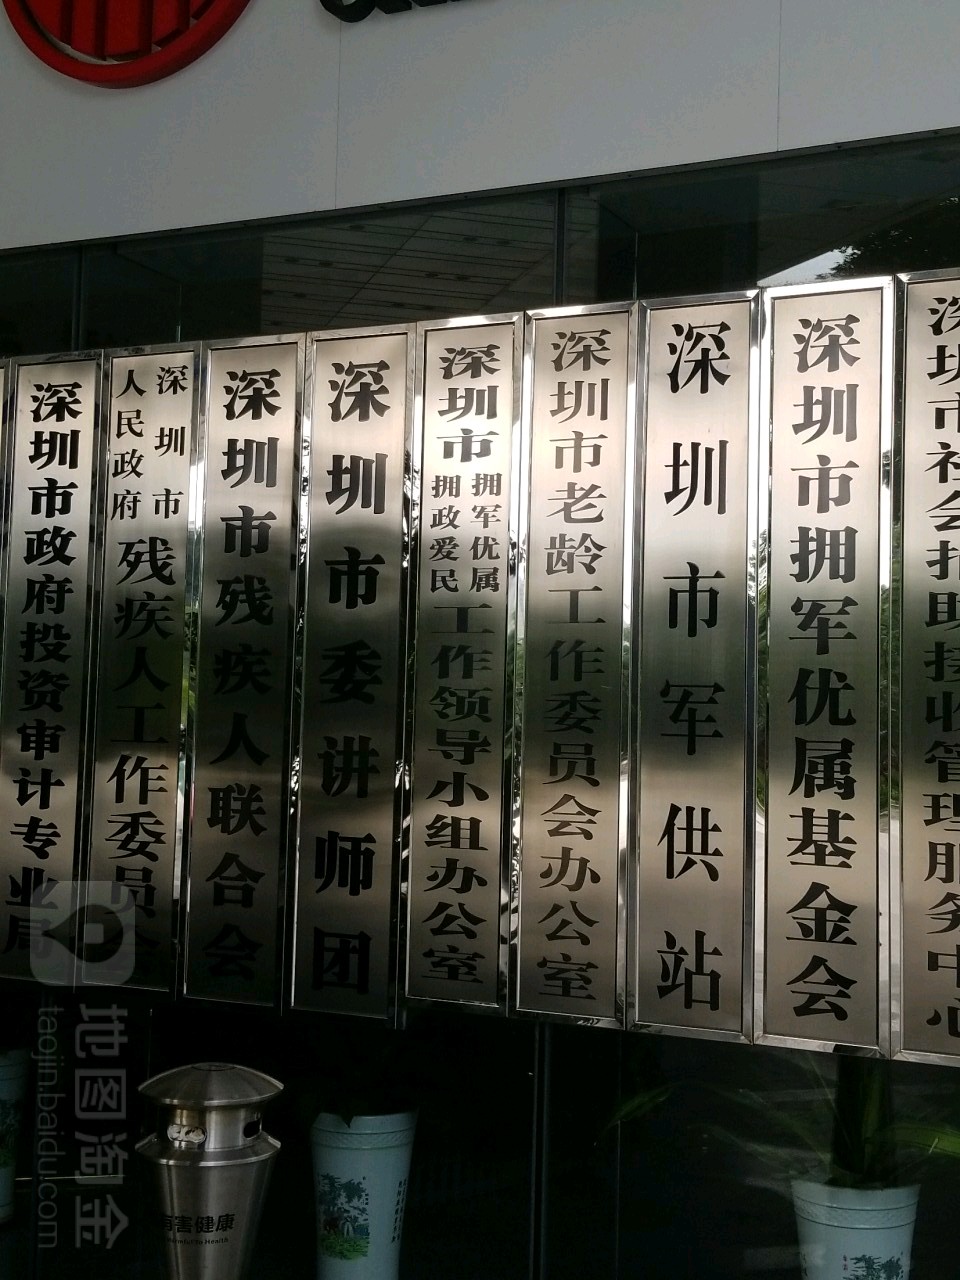 深圳市政府投资审计专业局
深圳市
人民政府
残疾人工作委员会
深圳市残疾人联合会
深圳市委讲师团
深圳市
拥军优属
拥政爱民
工作领导小组办公室
深圳市老龄工作委员会办公室
深圳市军供站
深圳市拥军优属基金会
深圳市社会捐助接收管理服务中心
有害健康
地图淘金
taojin.baidu.com